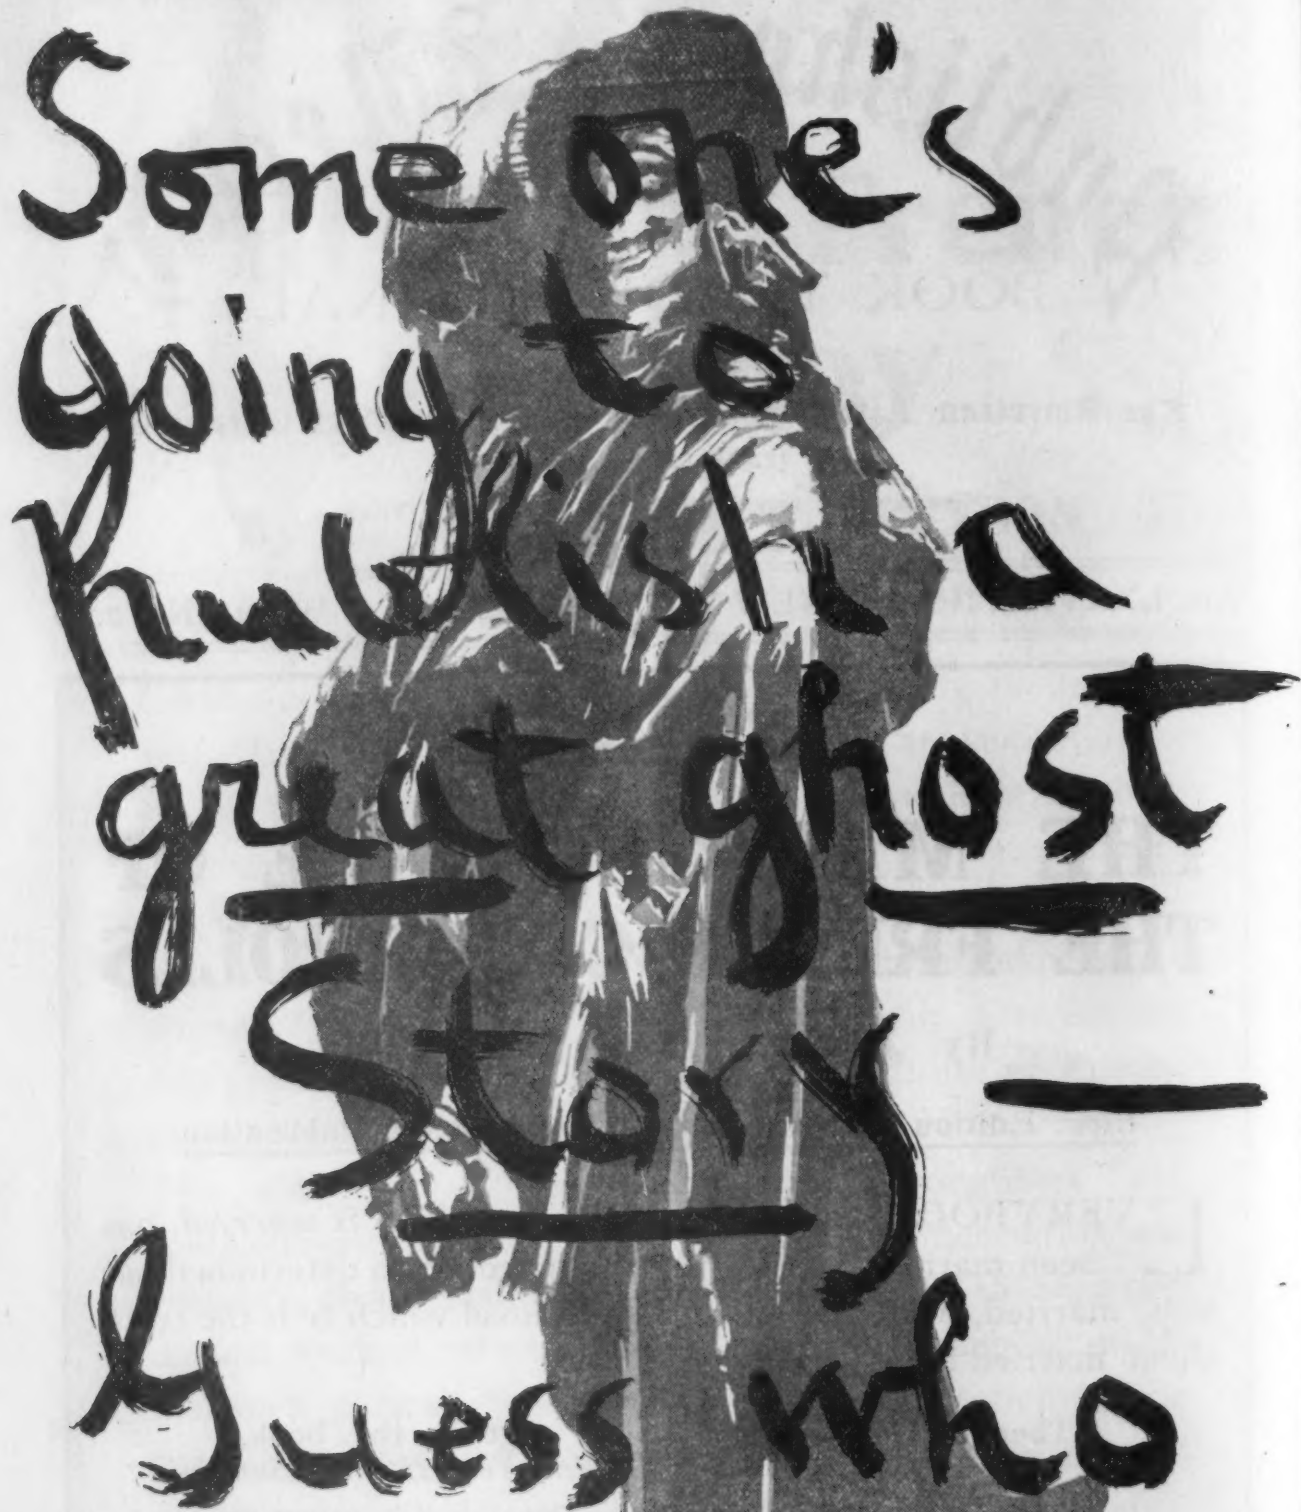 Some one's
going to
publish a
great ghost
Story —
Guess who